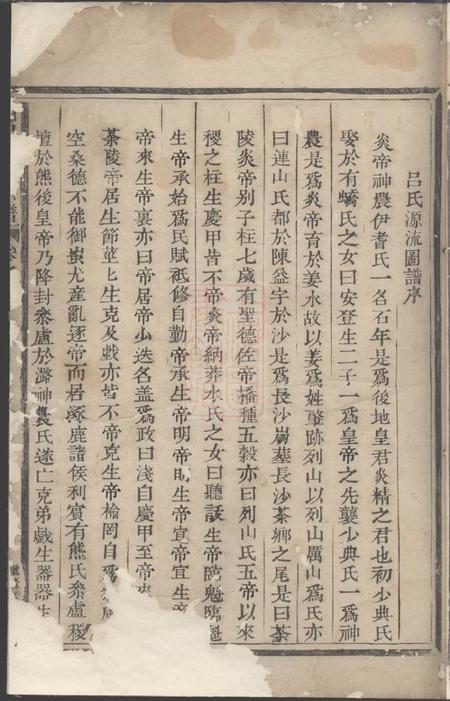 呂氏源流圖譜序
炎帝神農伊耆氏一名石年是爲後地皇君炎精之君也初少典氏
娶於有蟜氏之女曰安登生二子一爲皇帝之先襲少典氏一爲神
農是爲炎帝育於姜水故以姜爲姓肇跡列山以列山厲山爲氏亦
曰連山氏都於陳益宇於沙是爲長沙崩葬長沙茶鄉之尾是曰茶
陵炎帝别子柱七歲有聖德佐帝播種五穀亦曰列山氏五帝以來
稷之柱生慶甲皆不帝炎帝納莽水氏之女曰聽訞生帝臨魁臨魁
生帝承始爲民賦祗修自勤帝承生帝明帝明生帝宜帝宜生帝
帝來生帝裏亦曰帝居帝小迭名盖爲政曰淺自慶甲至帝來
茶陵帝居生節莖莖生克及戲亦皆不帝克生帝榆罔自爲
空桑德不能御蚩尤産亂逐帝而居涿鹿諸侯利賓有熊氏叅盧稷
壇於熊後皇帝乃降封叅盧於潞神農氏遂亡克弟戲生器器生